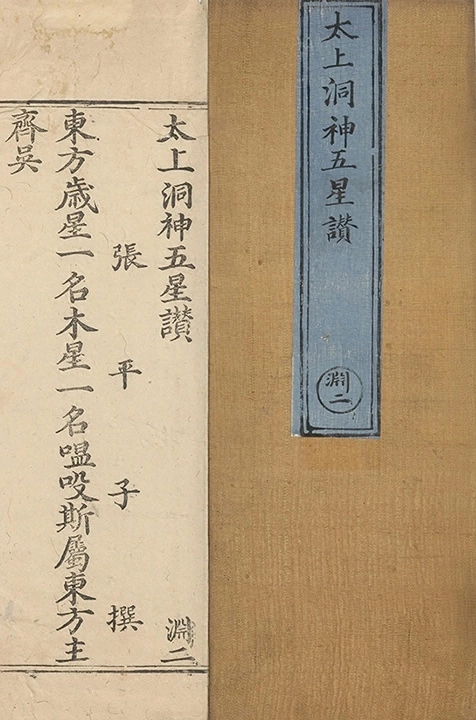 太上洞神五星讚
淵二
太上洞神五星讚
淵二
張平子撰
東方歳星一名木星一名嗢㕹斯屬東方主
齊吳